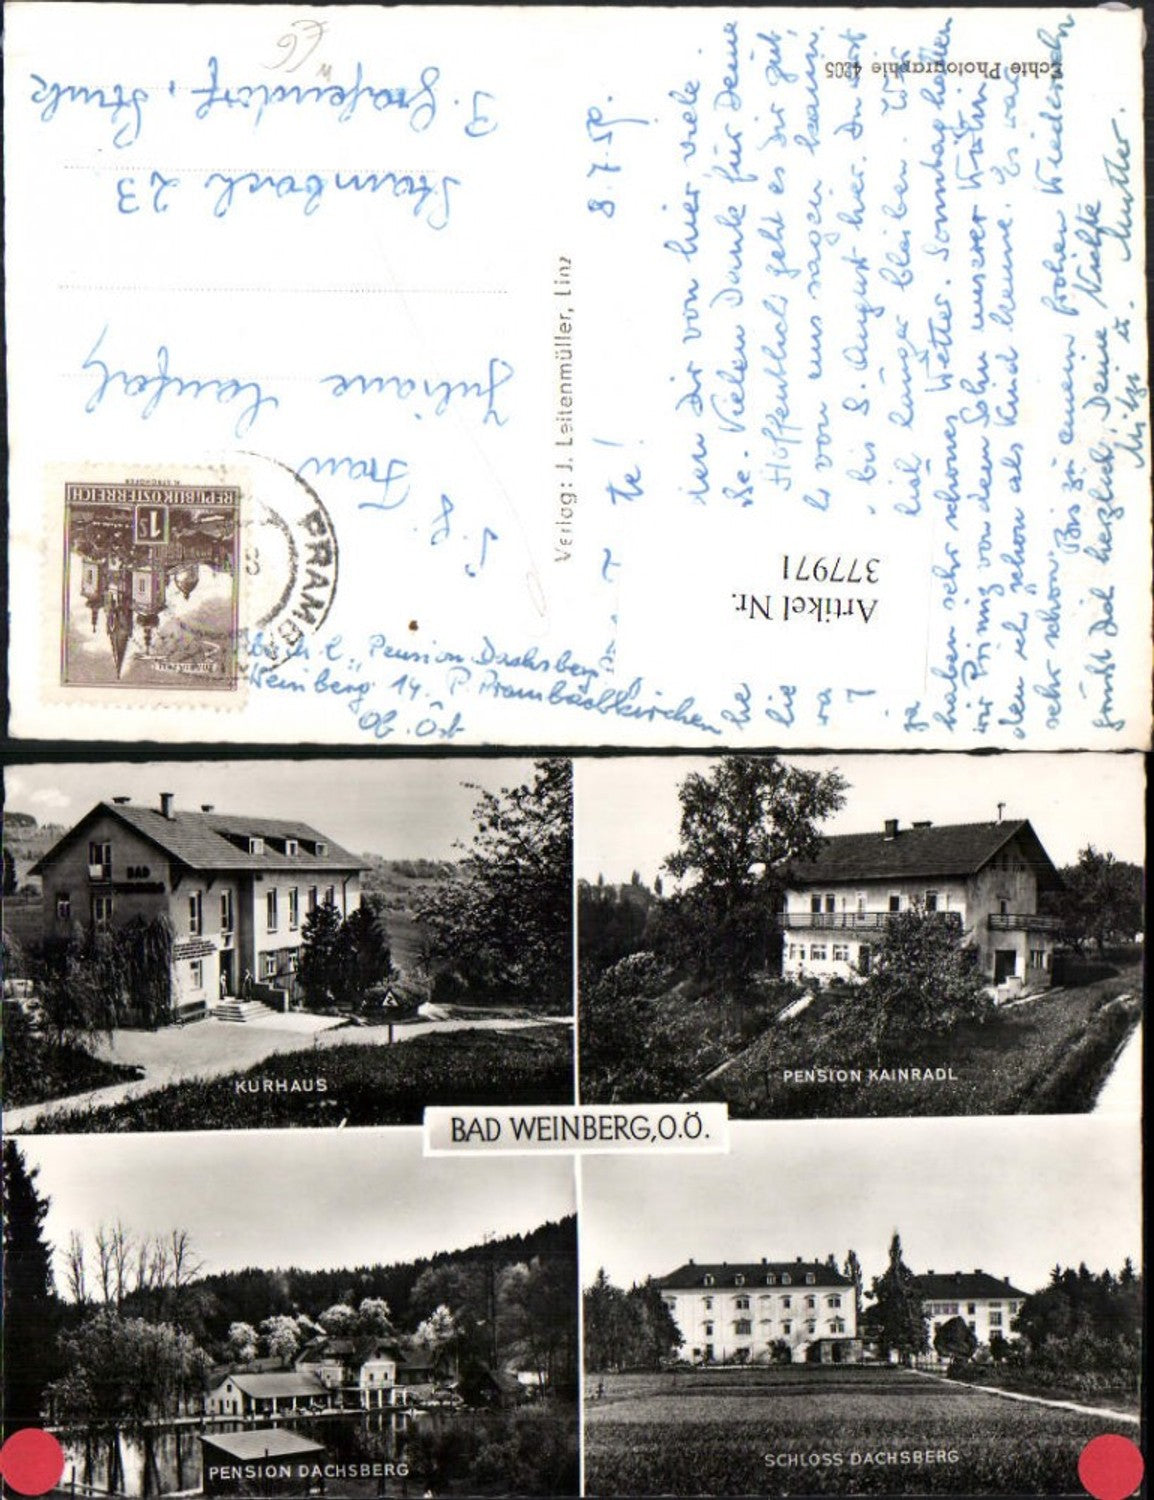 Echte Photographie 4205
8.7.59.
te!
Dir von hier viele
be. Vielen Dank für Deine
Hoffentlich geht es Dir gut,
von uns sagen kann.
bis 8. August hier. Du
länger bleiben. Wir
haben sehr schönes Wetter. Sonntag hatten
wir Prinz von dem Sohn unserer Wirtin,
den ich schon als Kind kenne. Es war
sehr schön. Bis zu einem frohen Wiedersehn
grüßt Dich herzlichst Deine Nichte
Mitzi u. Mutter.
Artikel Nr.
377971
Verlag: J. Leitenmüller, Linz
Frau
Juliane
Stambach 23
P. Grafendorf,
REPUBLIK ÖSTERREICH
1S
PRAMBA
"Pension Dachsberg
Weinberg 14. P. Prambachkirchen
Ob. Öst
BAD
KURHAUS
PENSION KAINRADL
BAD WEINBERG, O.Ö.
PENSION DACHSBERG
SCHLOSS DACHSBERG